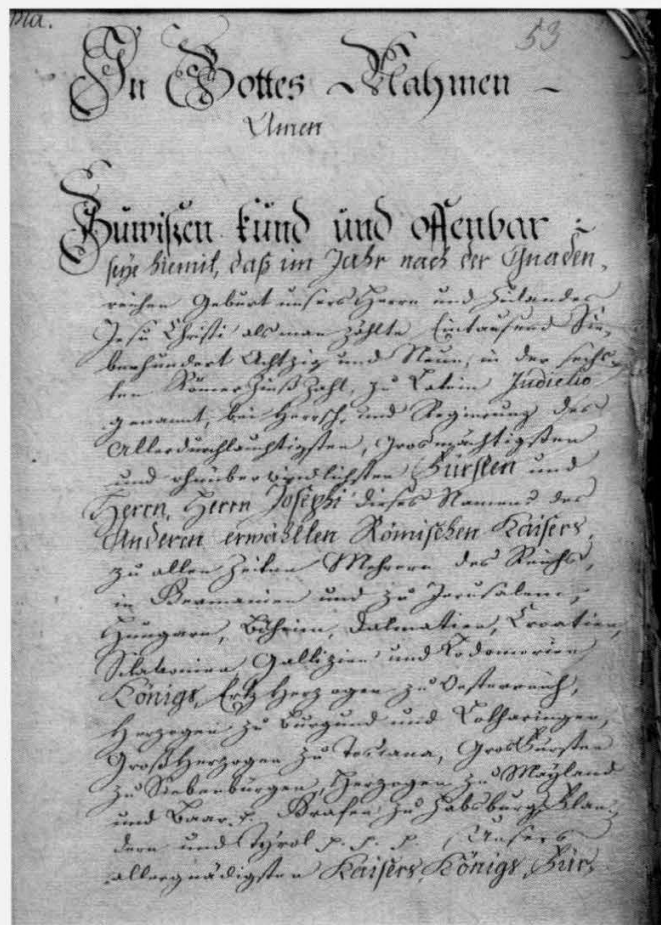 pia.
53
In Gottes Nahmen
Amen
Zuwißen kund und offenbar
seye hiemit, daß im Jahr nach der Gnaden-
reichen Geburt unsers Herrn und Heilandes
Jesu Christi als man zählte Eintausend Sie-
benhundert Achtzig und Neun, in der sechs-
ten Römer Zinß Zahl, zu Latein Indictio
genannt, bei Herrsch- und Regierung des
Allerdurchlauchtigsten, Grosmächtigsten
und ohnüberwindlichsten Fürsten und
Herrn, Herrn Josephi dieses Namens des
Anderen erwählten Römischen Kaisers,
zu allen Zeiten Mehrern des Reichs,
in Germanien und zu Jerusalem,
Hungarn, Böheim, Dalmatien, Croatien,
Sclavonien, Gallizien und Lodomerien
Königs, Ertz Herzogen zu Oesterreich,
Herzogen zu Burgund und Lotharingen,
Groß Herzogen zu Toscana, Gros Fürsten
zu Siebenbürgen, Herzogen zu Mayland
und Baar, Grafen zu Habsburg, Flan-
dern und Tyrol p. p. p. Unsers
allergnädigsten Kaisers, Königs, Für-